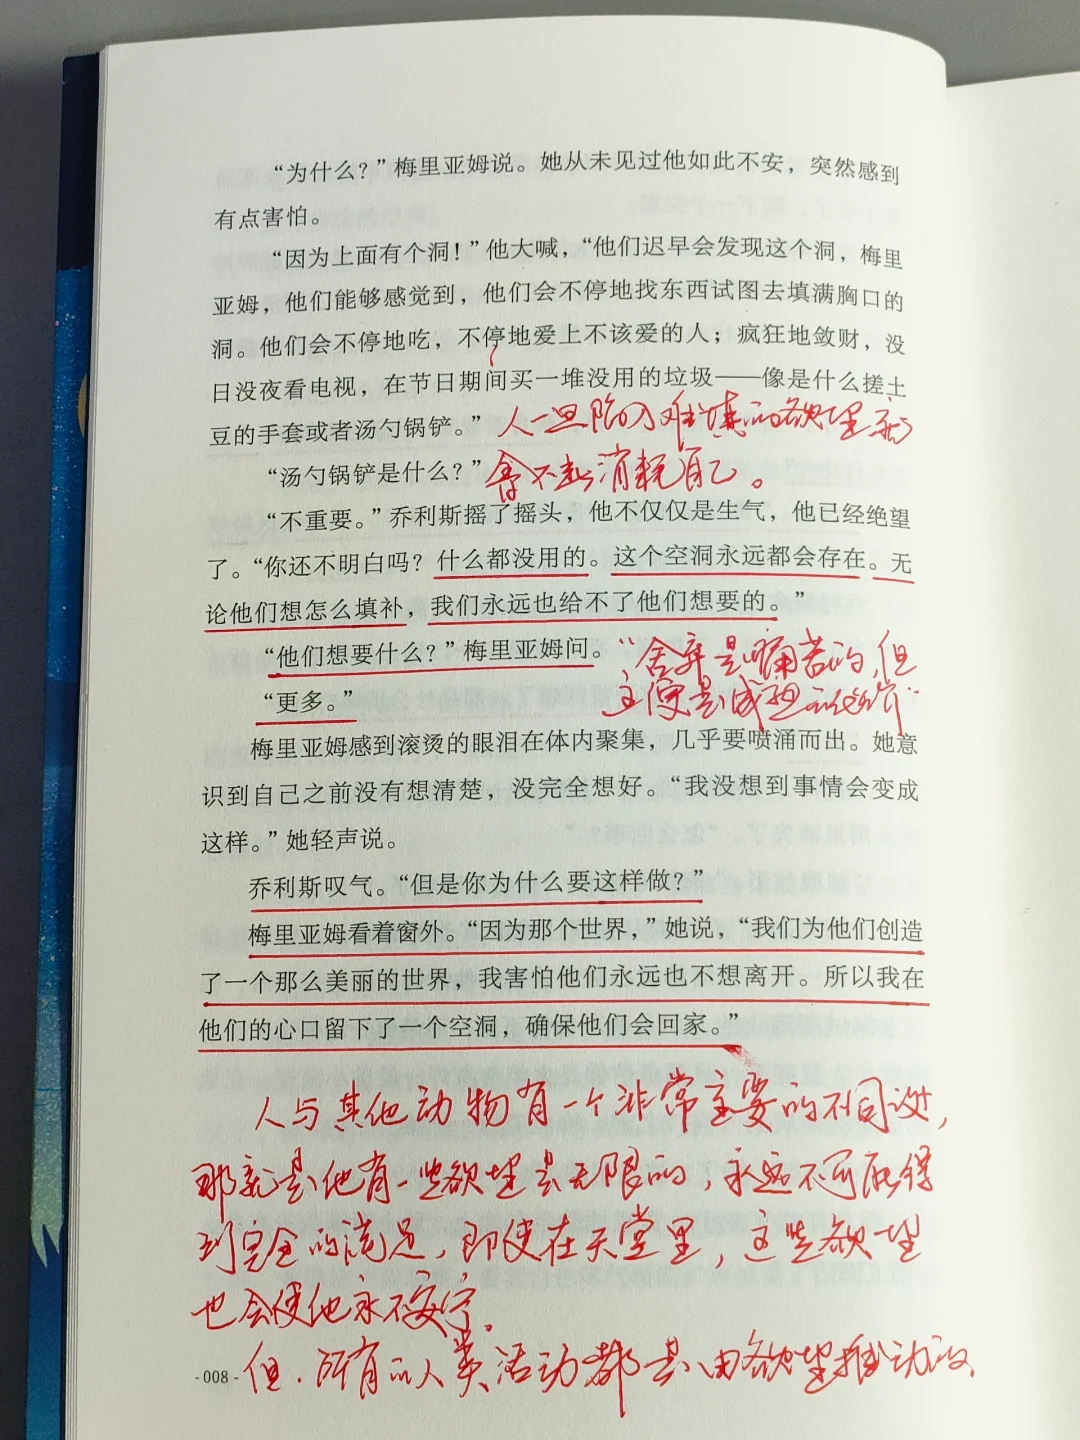 “为什么？”梅里亚姆说。她从未见过他如此不安，突然感到
有点害怕。
“因为上面有个洞！”他大喊，“他们迟早会发现这个洞，梅里
亚姆，他们能够感觉到，他们会不停地找东西试图去填满胸口的
洞。他们会不停地吃，不停地爱上不该爱的人；疯狂地敛财，没
日没夜看电视，在节日期间买一堆没用的垃圾——像是什么搓土
豆的手套或者汤勺锅铲。”
人一旦陷入难填的欲望就
“汤勺锅铲是什么？”
会不断消耗自己。
“不重要。”乔利斯摇了摇头，他不仅仅是生气，他已经绝望
了。“你还不明白吗？什么都没用的。这个空洞永远都会存在。无
论他们想怎么填补，我们永远也给不了他们想要的。”
“他们想要什么？”梅里亚姆问。
“舍弃是痛苦的，但
“更多。”
梅里亚姆感到滚烫的眼泪在体内聚集，几乎要喷涌而出。她意
识到自己之前没有想清楚，没完全想好。“我没想到事情会变成
这样。”她轻声说。
乔利斯叹气。“但是你为什么要这样做？”
梅里亚姆看着窗外。“因为那个世界，”她说，“我们为他们创造
了一个那么美丽的世界，我害怕他们永远也不想离开。所以我在
他们的心口留下了一个空洞，确保他们会回家。”
人与其他动物有一个非常主要的不同处，
那就是他有一些欲望是无限的，永远不可能得
到完全的满足，即使在天堂里，这些欲望
也会使他永不安宁。
但，所有的人类活动都是由欲望推动的
-008-